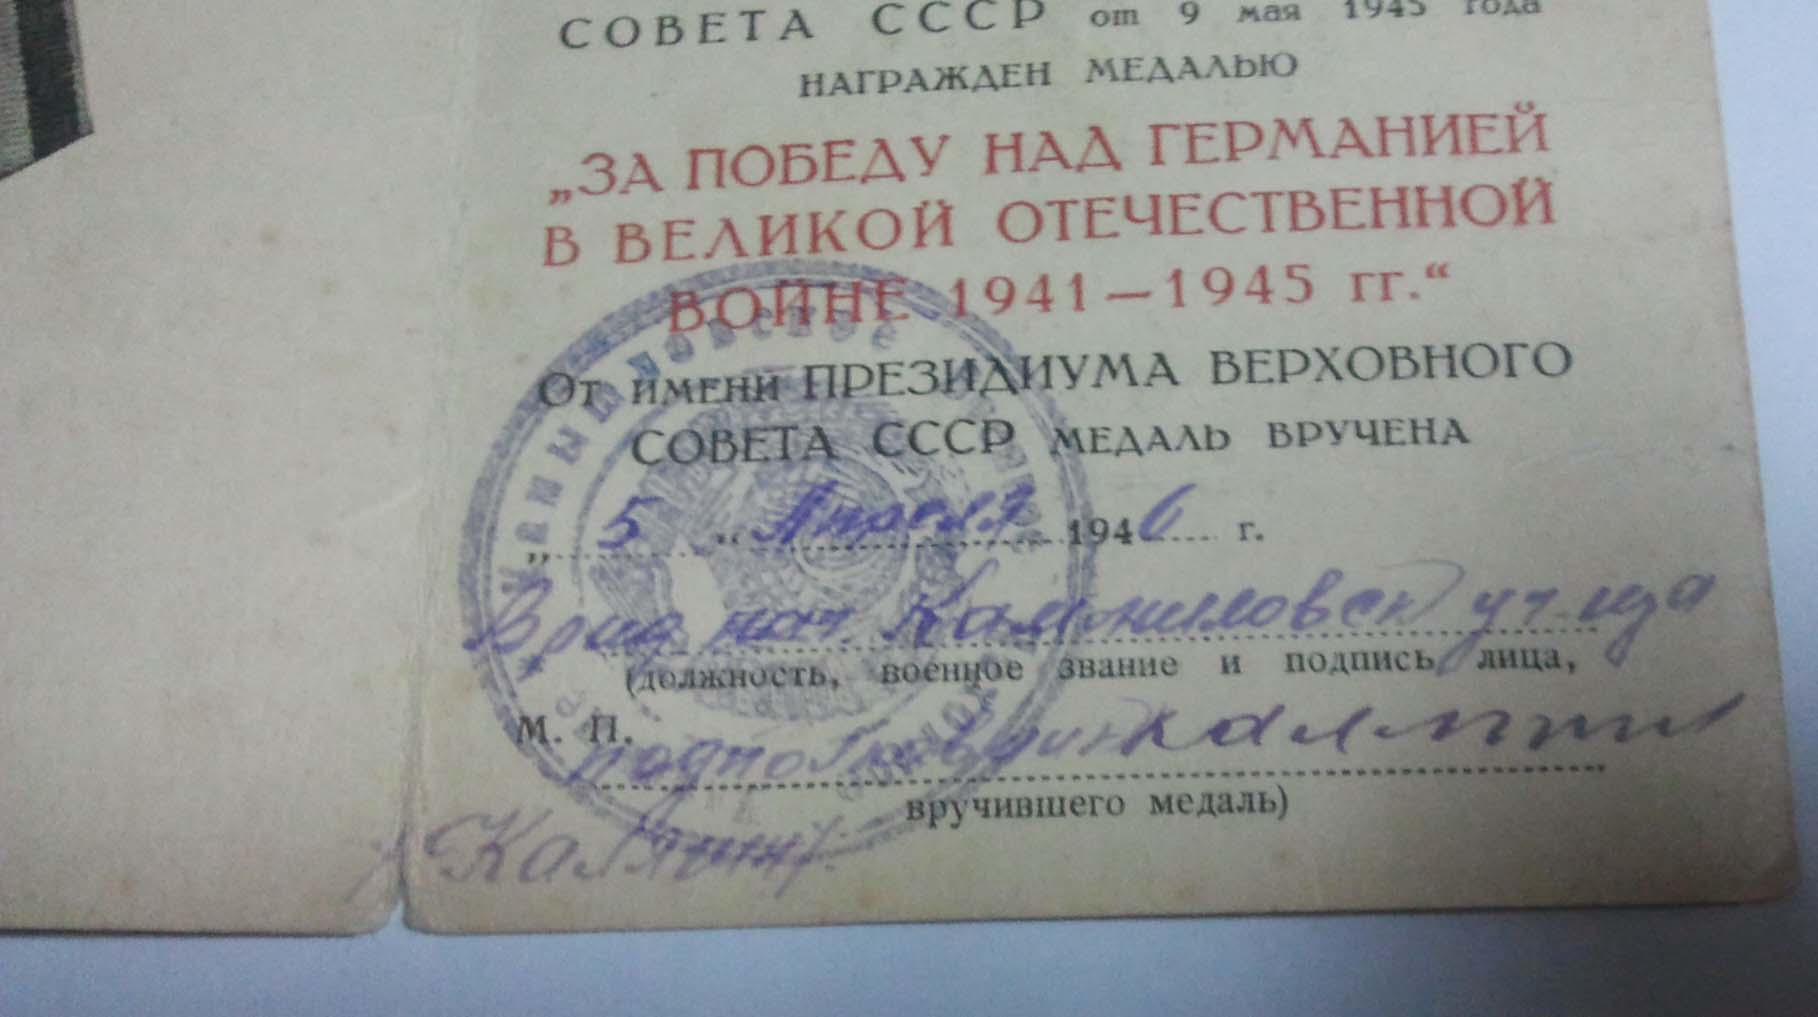 СОВЕТА СССР от 9 мая 1945 года
НАГРАЖДЕН МЕДАЛЬЮ
„ЗА ПОБЕДУ НАД ГЕРМАНИЕЙ
В ВЕЛИКОЙ ОТЕЧЕСТВЕННОЙ
ВОЙНЕ 1941—1945 гг.“
От имени ПРЕЗИДИУМА ВЕРХОВНОГО
СОВЕТА СССР МЕДАЛЬ ВРУЧЕНА
„ 5 “ Апреля 1946 г.
Врид нач.
(должность, военное звание и подпись лица,
М. П. подполковник
вручившего медаль)